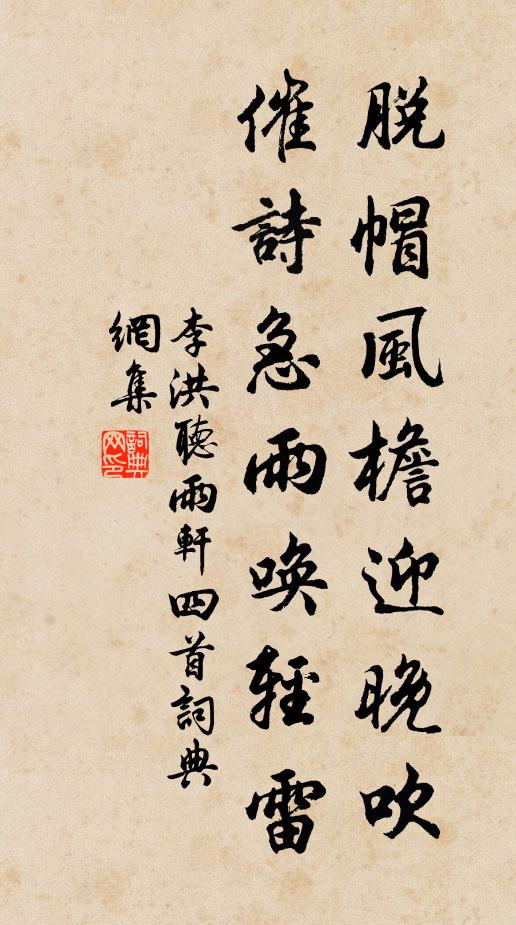 脱帽風檐迎晚吹
催詩急雨喚輕雷
李洪聽雨軒四首詞典
網集
詞典
网印